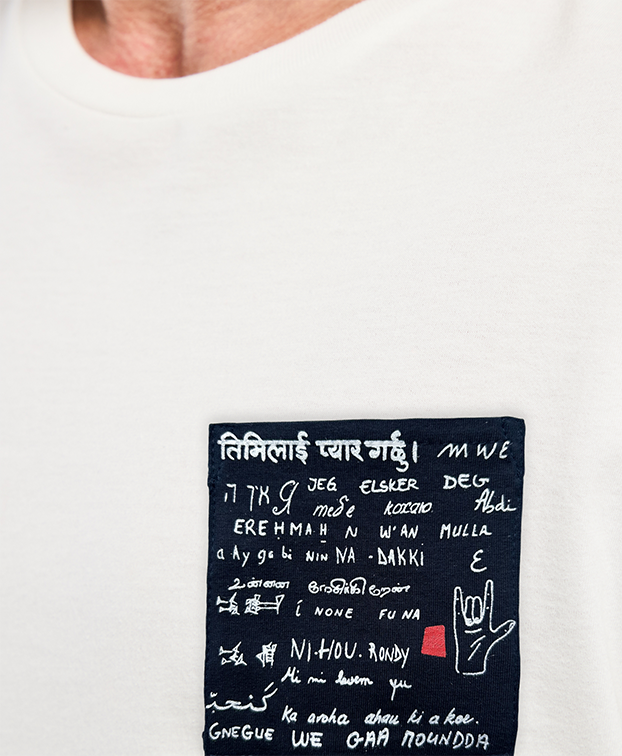 तिमिलाई प्यार गर्छु। MWE
JEG ELSKER DEG
Я тебе кохаю Abdi
EREḤMAḤ N W'AN MULLA
a Ay ga bi NIN NA - DAKKI
Ɛ
உன்னை நேசிக்கிறேன்
í NONE FU NA
NI-HOU-RONDY
Mi mi lovem yu
كنحبّ
Ka aroha ahau ki a koe.
GNEGUE WE GAA MOUNDDA